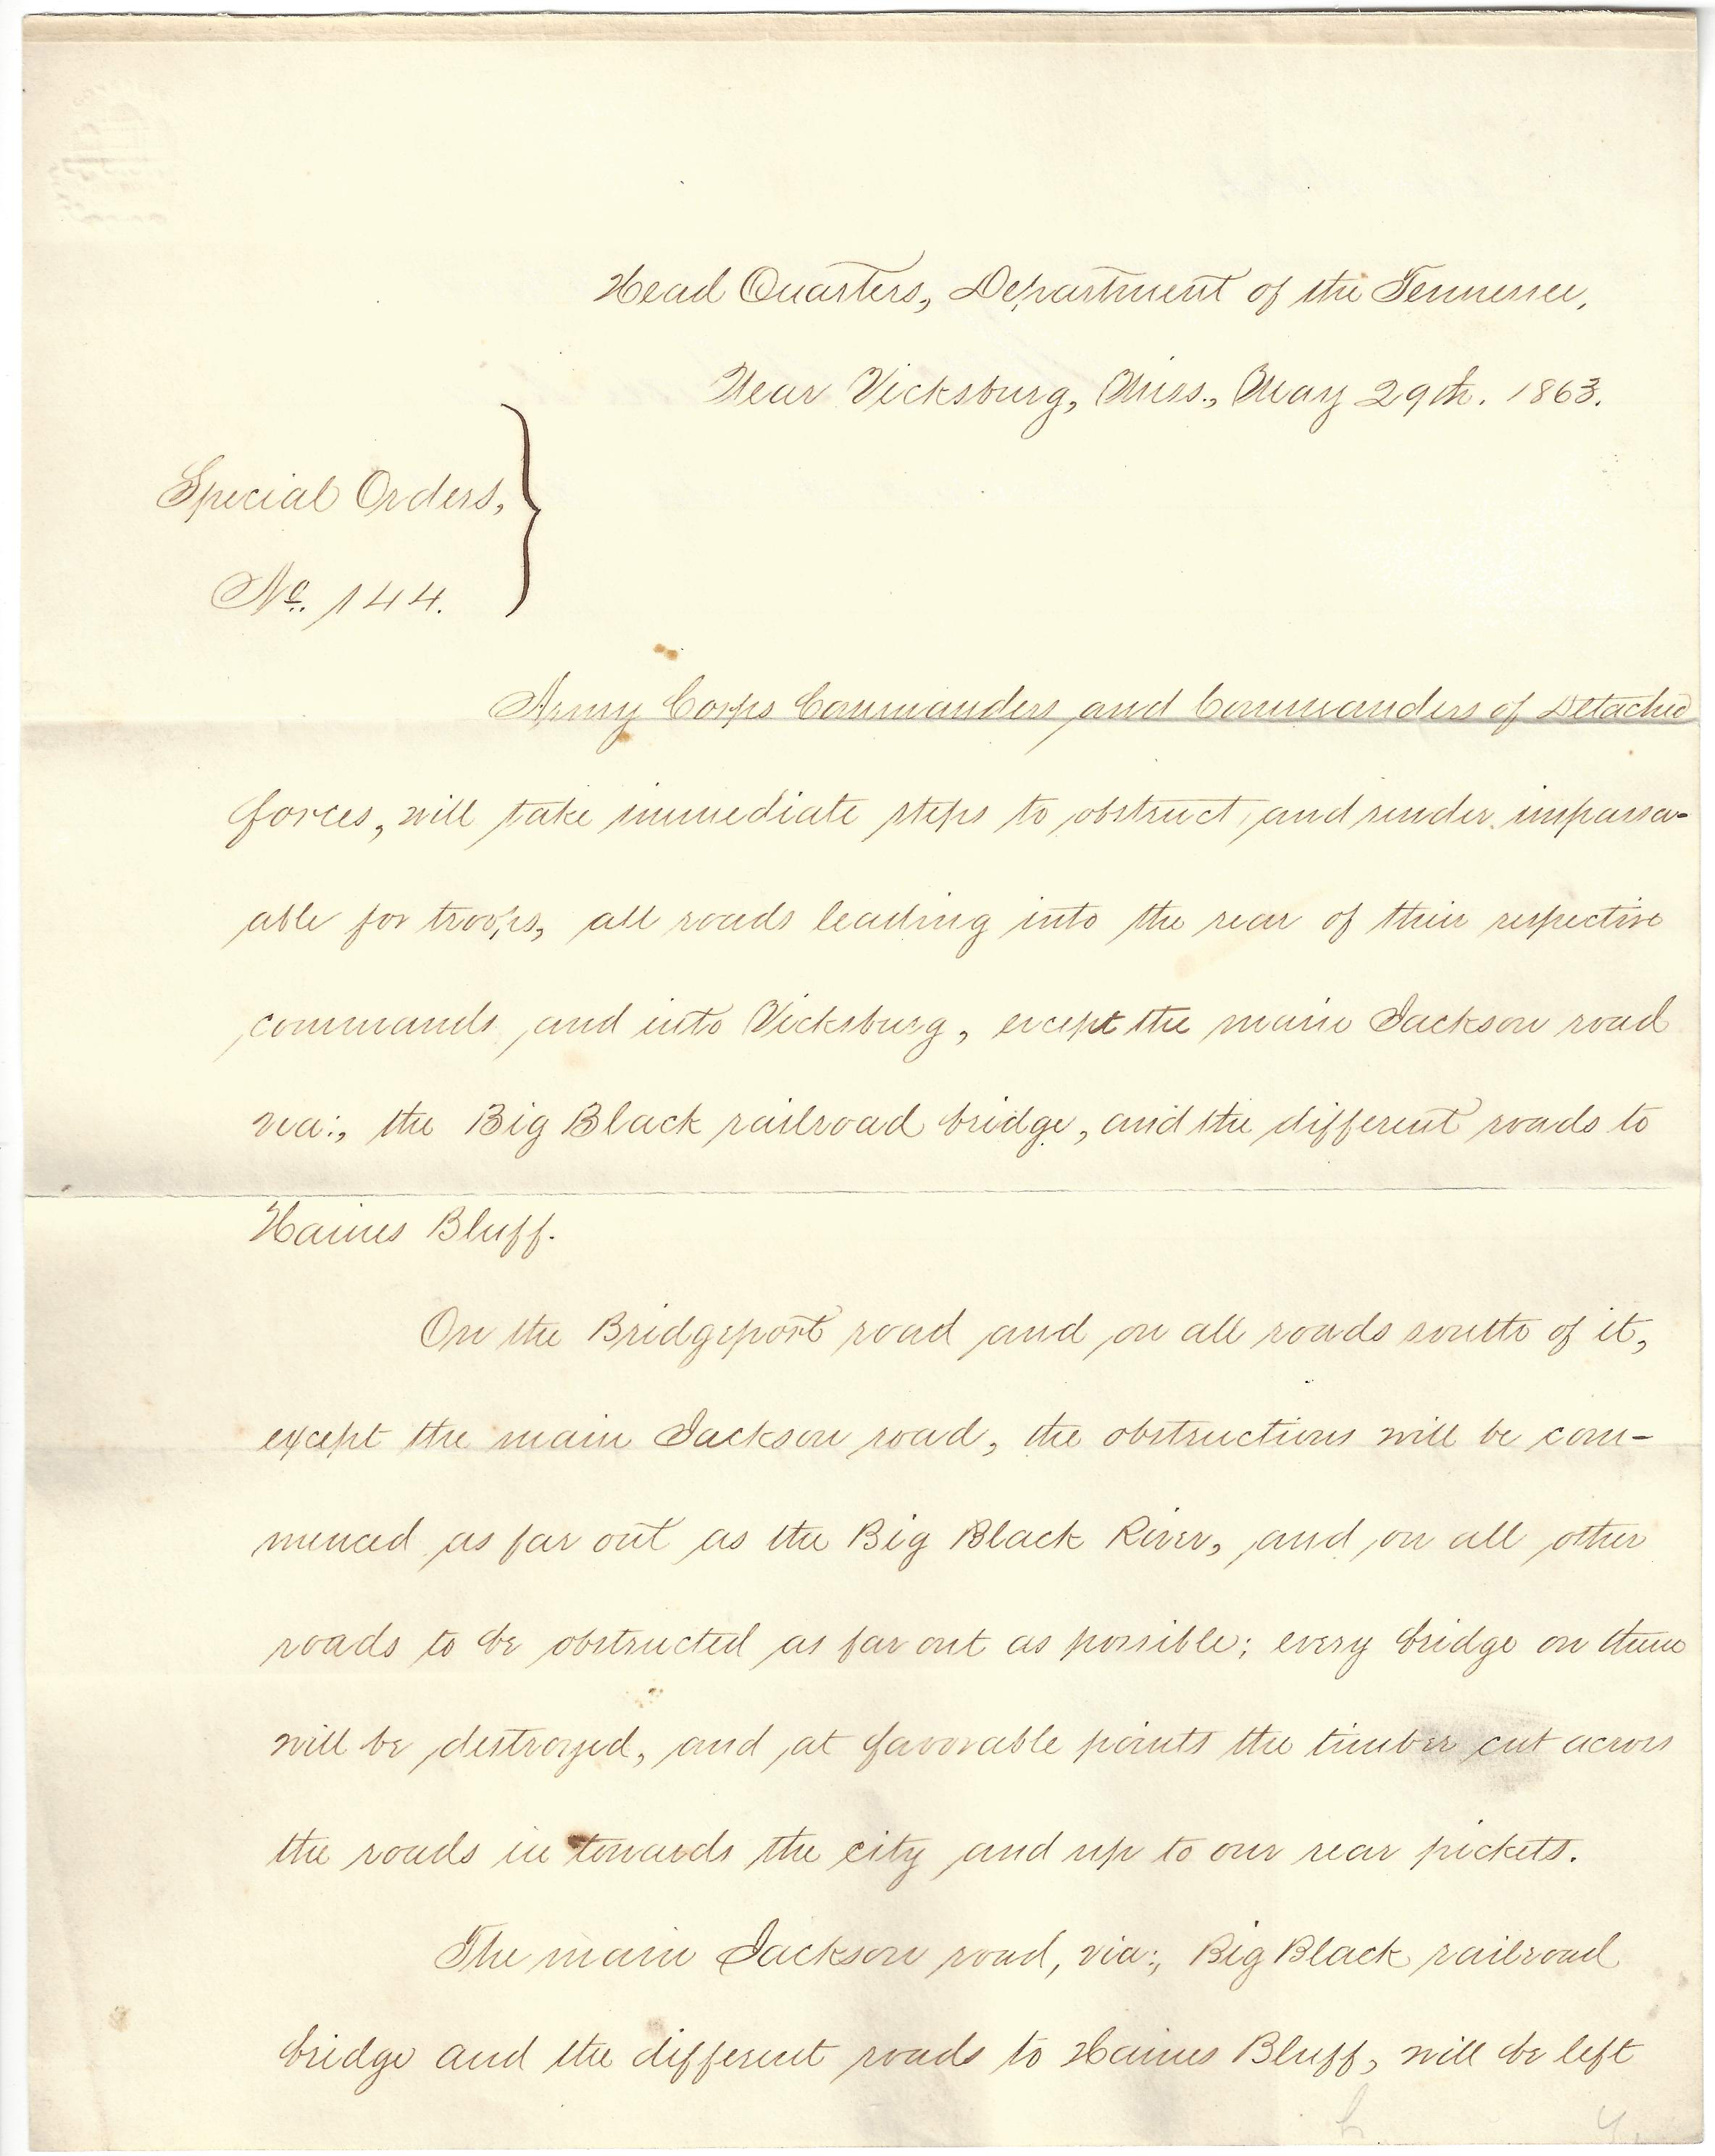 Head Quarters, Department of the Tennessee,
Near Vicksburg, Miss., May 29th. 1863.
Special Orders,
No. 144.
Army Corps Commanders and Commanders of Detached
forces, will take immediate steps to obstruct, and render impassa-
able for troops, all roads leading into the rear of their respective
commands, and into Vicksburg, except the main Jackson road
via:, the Big Black railroad bridge, and the different roads to
Haines Bluff.
On the Bridgeport road and on all roads south of it,
except the main Jackson road, the obstructions will be com-
menced as far out as the Big Black River, and on all other
roads to be obstructed as far out as possible; every bridge on them
will be destroyed, and at favorable points the timber cut across
the roads in towards the city and up to our rear pickets.
The main Jackson road, via:, Big Black railroad
bridge and the different roads to Haines Bluff, will be left